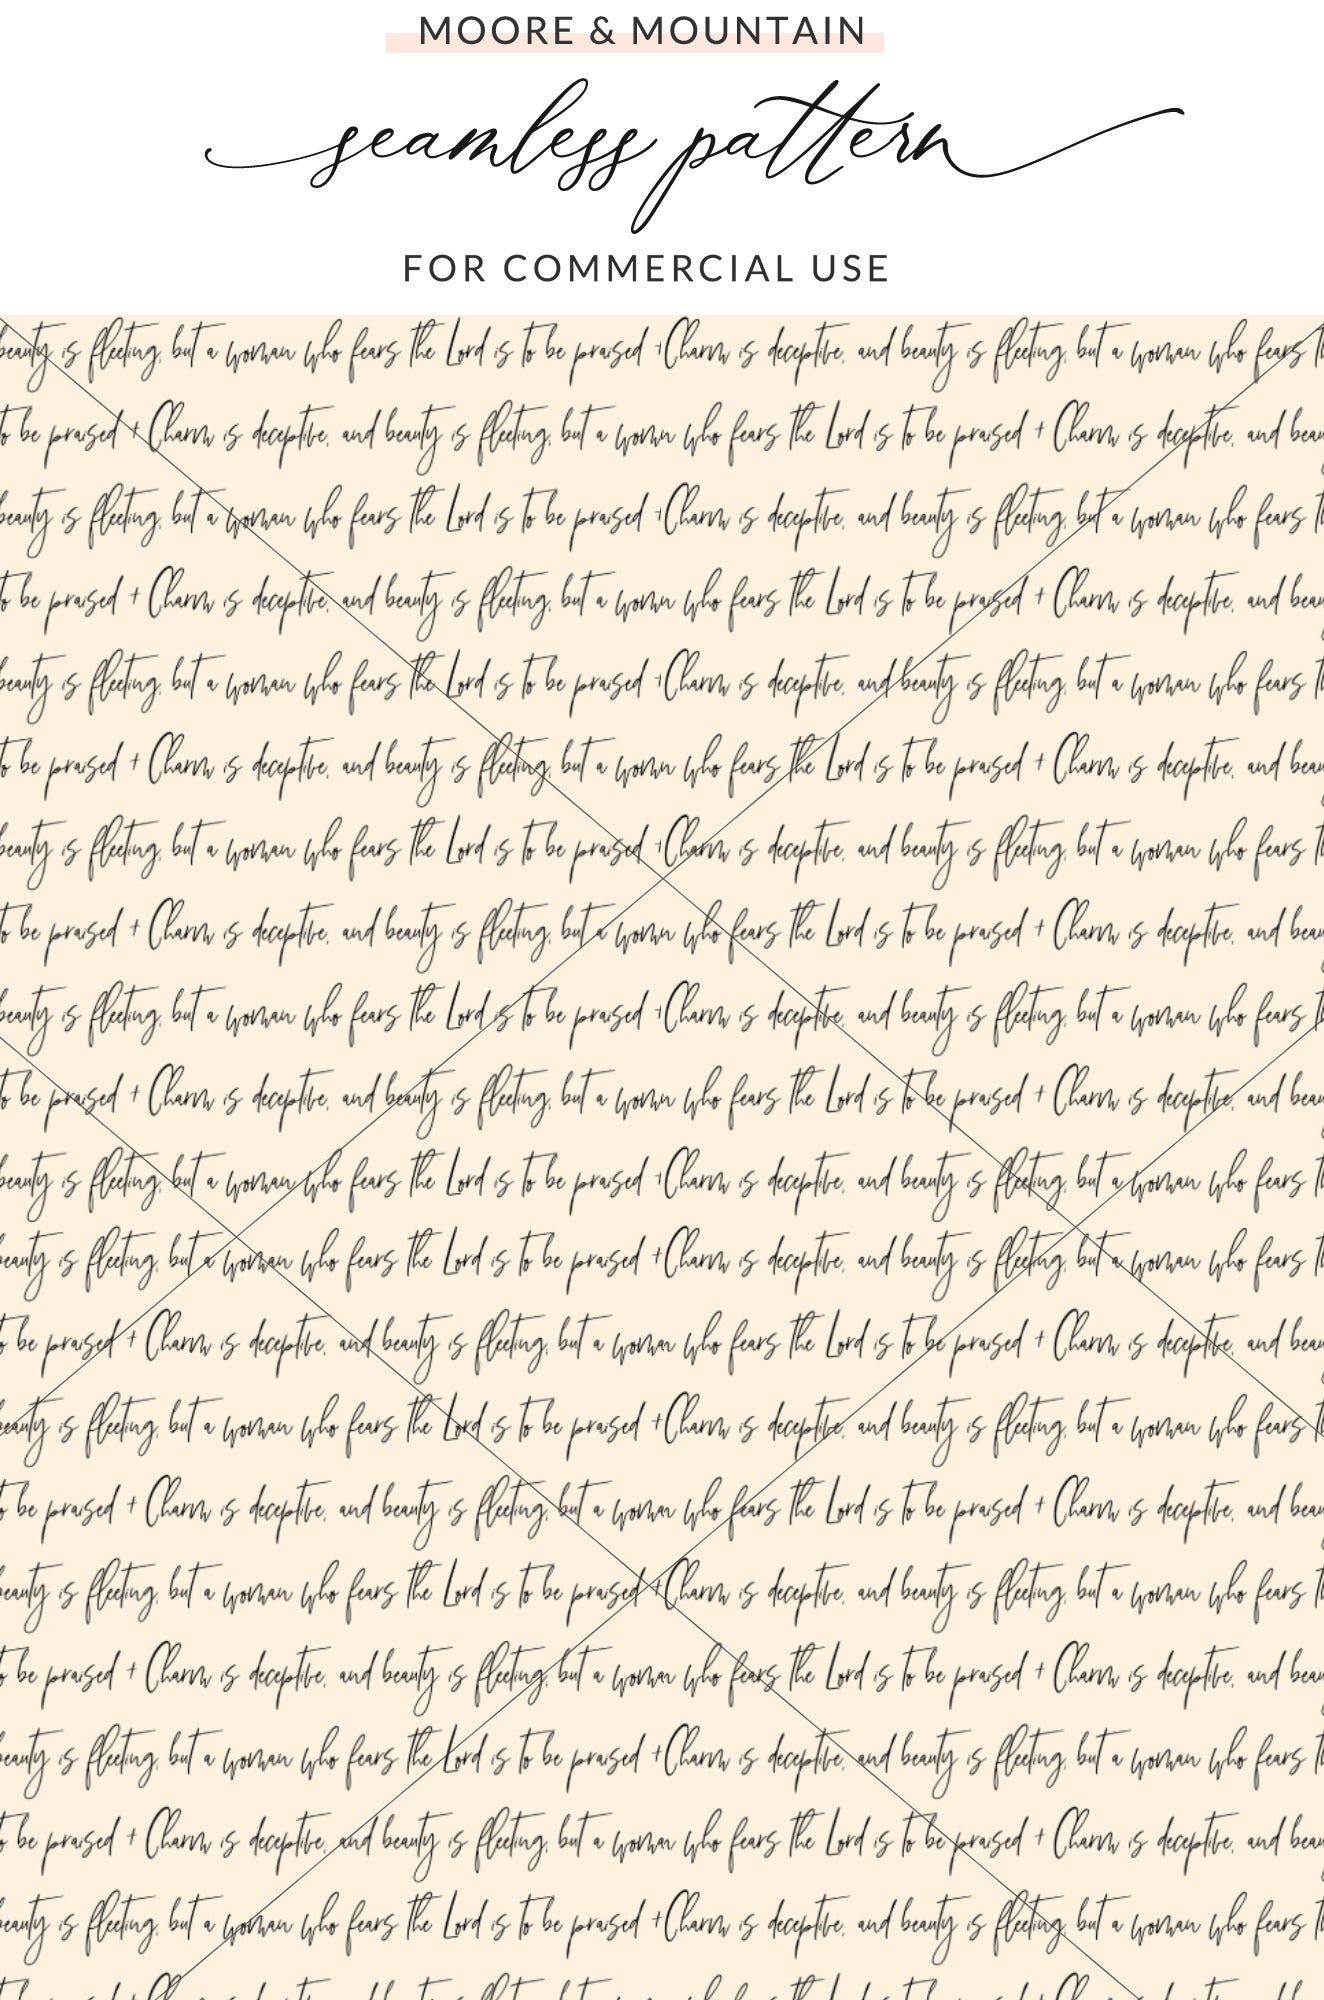 MOORE & MOUNTAIN
seamless pattern
FOR COMMERCIAL USE
beauty is fleeting, but a woman who fears the Lord is to be praised + Charm is deceptive, and beauty is fleeting, but a woman who fears
to be praised + Charm is deceptive, and beauty is fleeting, but a womn who fears the Lord is to be praised + Charm is deceptive, and beau
beauty is fleeting, but a woman who fears the Lord is to be praised + Charm is deceptive, and beauty is fleeting, but a woman who fears
to be praised + Charm is deceptive, and beauty is fleeting, but a womn who fears the Lord is to be praised + Charm is deceptive, and beau
beauty is fleeting, but a woman who fears the Lord is to be praised + Charm is deceptive, and beauty is fleeting, but a woman who fears
to be praised + Charm is deceptive, and beauty is fleeting, but a womn who fears the Lord is to be praised + Charm is deceptive, and beau
beauty is fleeting, but a woman who fears the Lord is to be praised + Charm is deceptive, and beauty is fleeting, but a woman who fears
to be praised + Charm is deceptive, and beauty is fleeting, but a womn who fears the Lord is to be praised + Charm is deceptive, and beau
beauty is fleeting, but a woman who fears the Lord is to be praised + Charm is deceptive, and beauty is fleeting, but a woman who fears
to be praised + Charm is deceptive, and beauty is fleeting, but a womn who fears the Lord is to be praised + Charm is deceptive, and beau
beauty is fleeting, but a woman who fears the Lord is to be praised + Charm is deceptive, and beauty is fleeting, but a woman who fears
beauty is fleeting, but a woman who fears the Lord is to be praised + Charm is deceptive, and beauty is fleeting, but a woman who fears
to be praised + Charm is deceptive, and beauty is fleeting, but a woman who fears the Lord is to be praised + Charm is deceptive, and beau
beauty is fleeting, but a woman who fears the Lord is to be praised + Charm is deceptive, and beauty is fleeting, but a woman who fears
to be praised + Charm is deceptive, and beauty is fleeting, but a woman who fears the Lord is to be praised + Charm is deceptive, and beau
beauty is fleeting, but a woman who fears the Lord is to be praised + Charm is deceptive, and beauty is fleeting, but a woman who fears
to be praised + Charm is deceptive, and beauty is fleeting, but a woman who fears the Lord is to be praised + Charm is deceptive, and beau
beauty is fleeting, but a woman who fears the Lord is to be praised + Charm is deceptive, and beauty is fleeting, but a woman who fears
to be praised + Charm is deceptive, and beauty is fleeting, but a woman who fears the Lord is to be praised + Charm is deceptive, and beau
beauty is fleeting, but a woman who fears the Lord is to be praised + Charm is deceptive, and beauty is fleeting, but a woman who fears